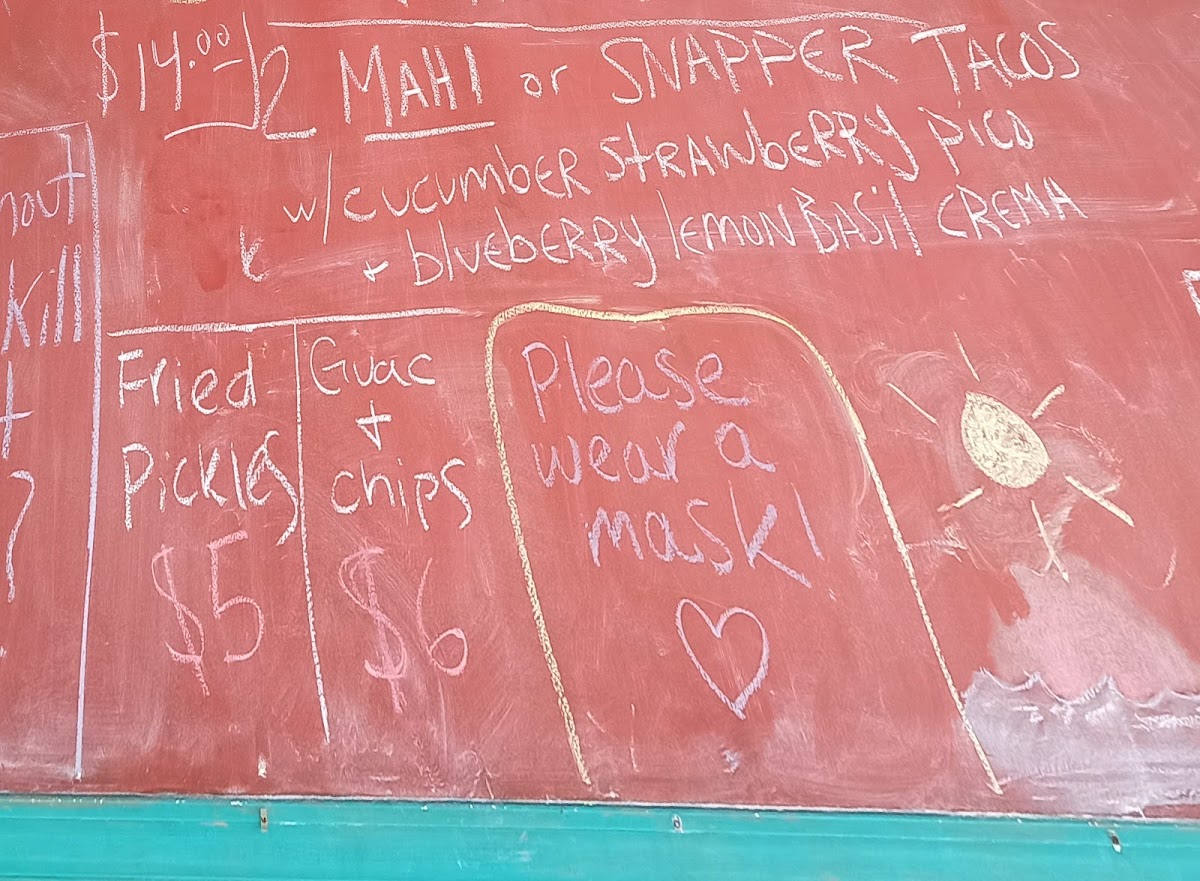 $14.00 / 2 MAHI or SNAPPER TACOS
w/cucumber STRAWbERRY pico
+ bluebERRY lemon BASil CREMA
Kill
Fried
Pickles
$5
Guac
+
chips
$6
Please
wear a
mask!